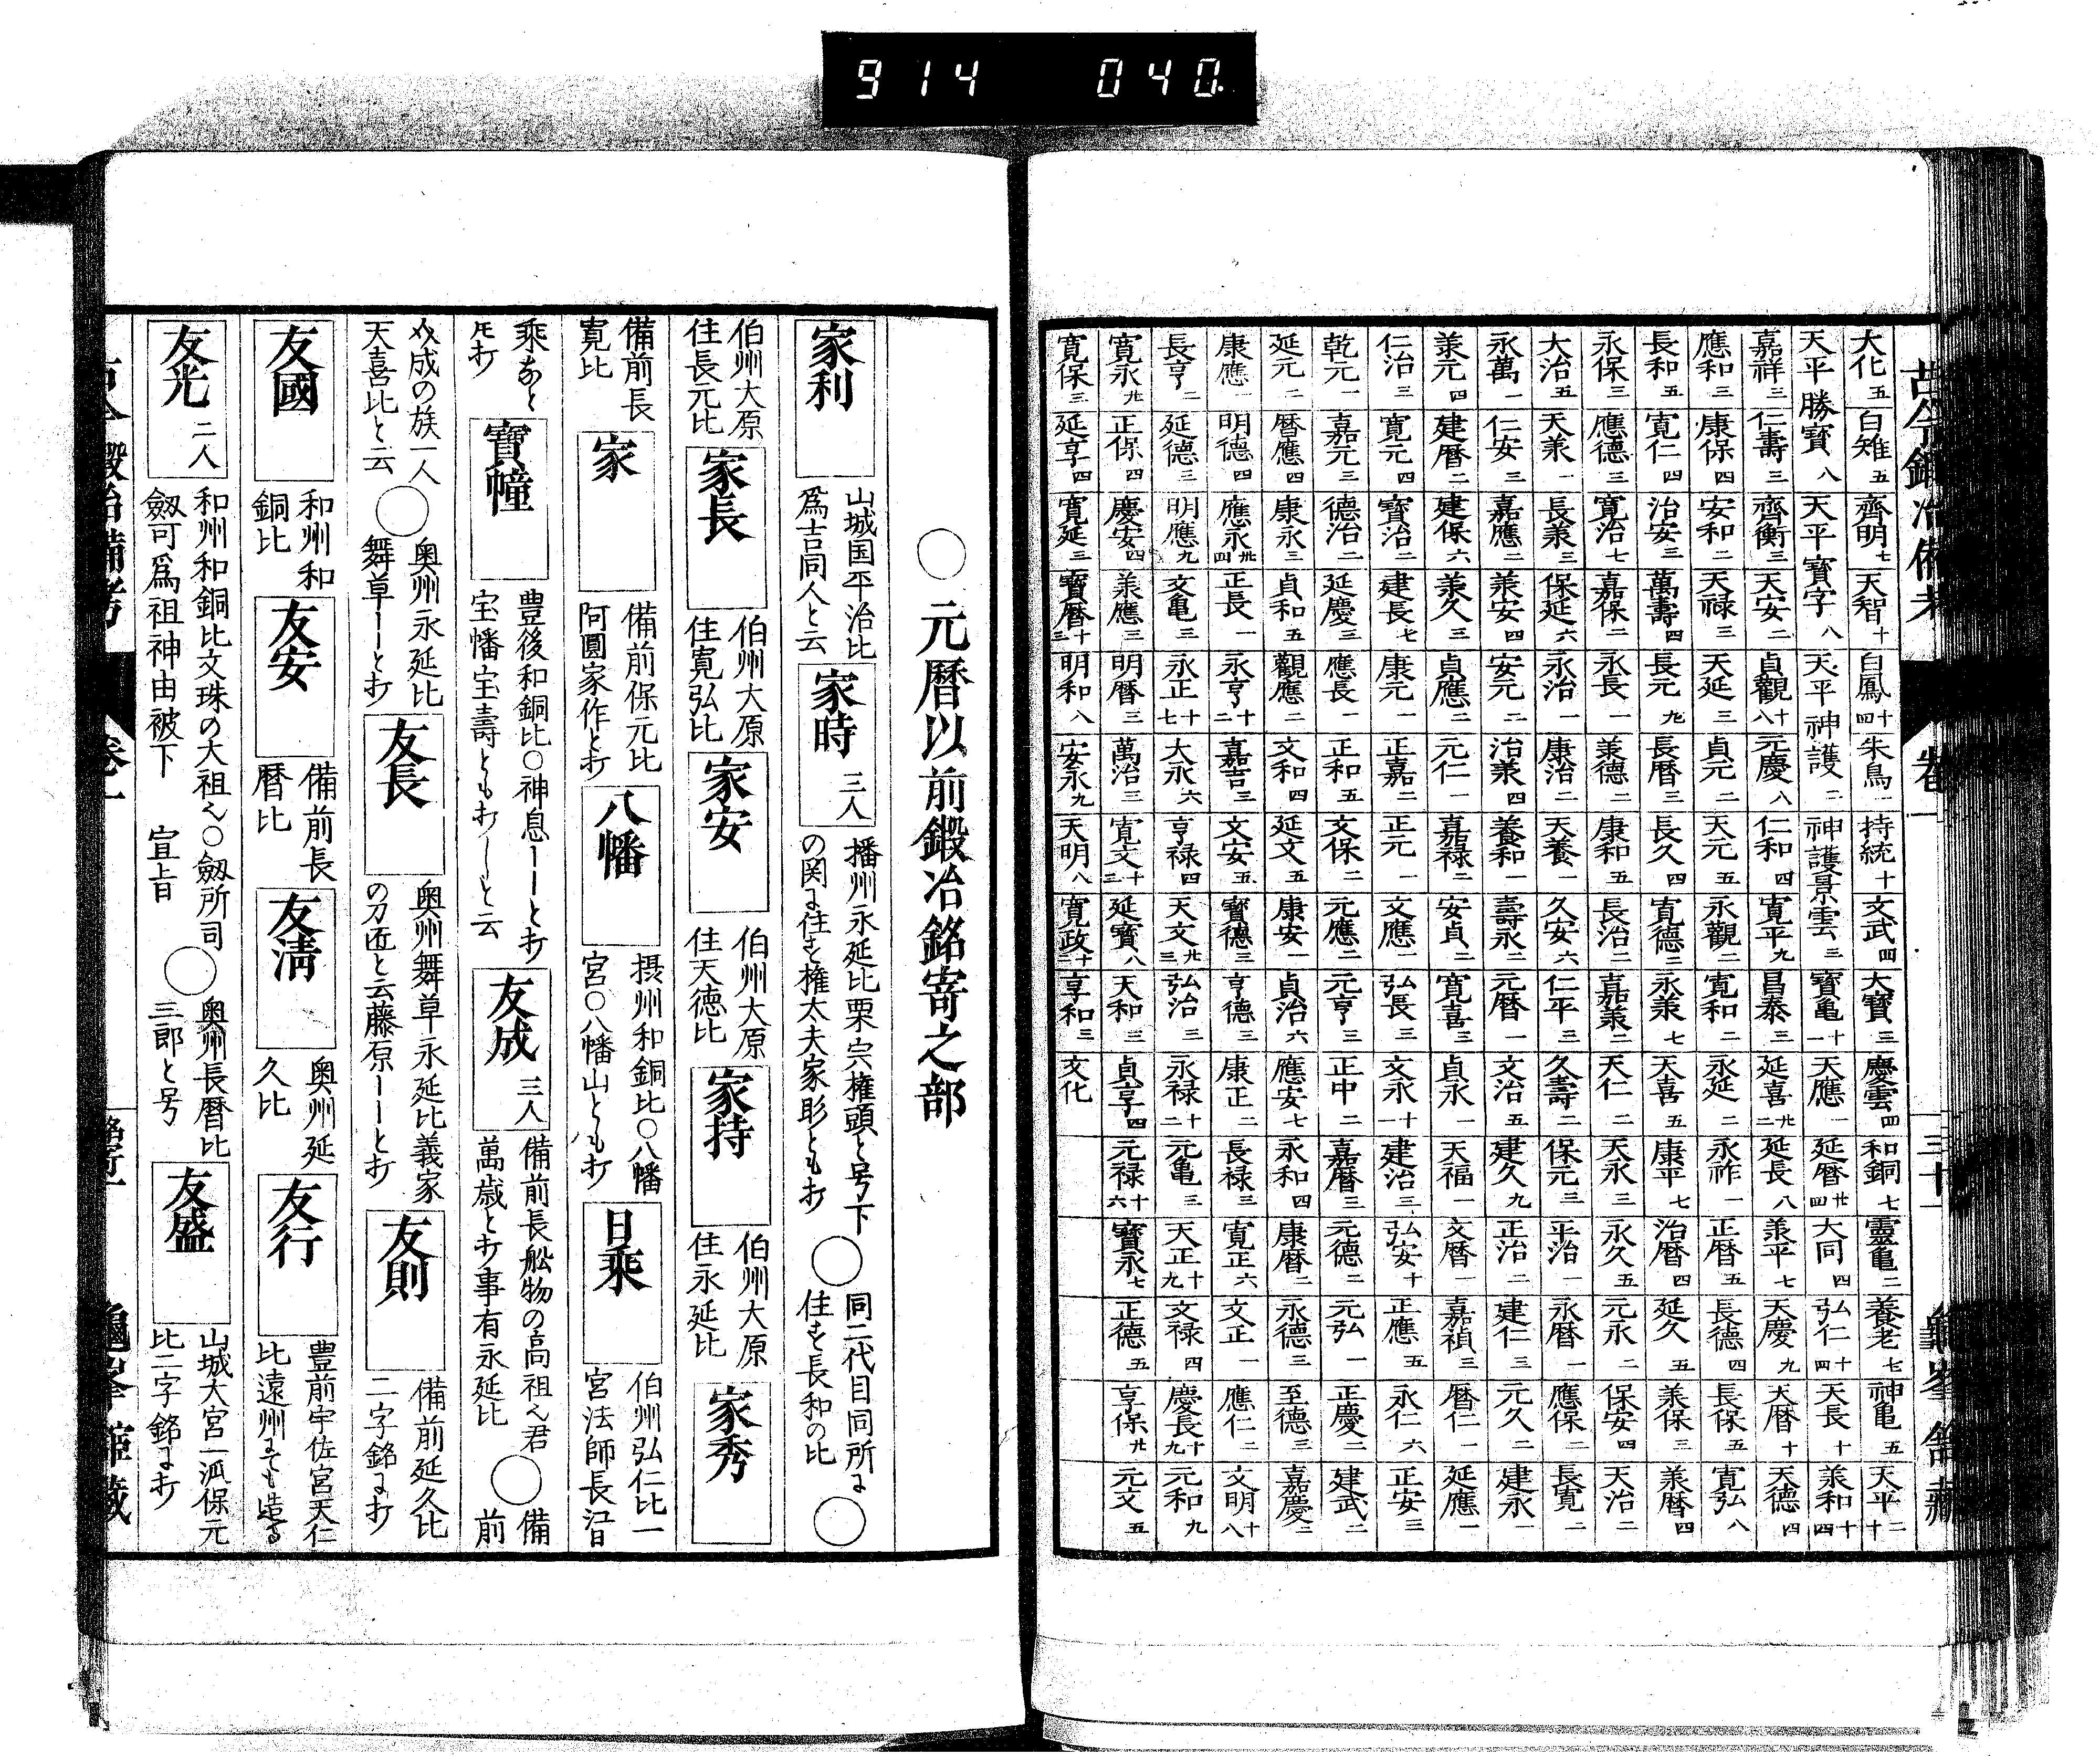 914 040
古今鍛冶備考 巻一 三十一 龜峯館藏
大化五 白雉五 齊明七 天智十 白鳳十四 朱鳥一 持統十 文武四 大寶三 慶雲四 和銅七 靈亀二 養老七 神亀五 天平二十
天平勝寶八 天平寶字八 天平神護二 神護景雲三 寶亀十一 天應一 延暦廿四 大同四 弘仁十四 天長十 羕和十四
嘉祥三 仁壽三 齊衡三 天安二 貞觀十八 元慶八 仁和四 寛平九 昌泰三 延喜廿二 延長八 羕平七 天慶九 天暦十 天德四
應和三 康保四 安和二 天禄三 天延三 貞元二 天元五 永觀二 寛和二 永延二 永祚一 正暦五 長德四 長保五 寛弘八
長和五 寛仁四 治安三 萬壽四 長元九 長暦三 長久四 寛德二 永羕七 天喜五 康平七 治暦四 延久五 羕保三 羕暦四
永保三 應德三 寛治七 嘉保二 永長一 羕德二 康和五 長治二 嘉羕二 天仁二 天永三 永久五 元永二 保安四 天治二
大治五 天羕一 長羕三 保延六 永治一 康治二 天養一 久安六 仁平三 久壽二 保元三 平治一 永暦一 應保二 長寛二
永萬一 仁安三 嘉應二 羕安四 安元二 治羕四 養和一 壽永二 元暦一 文治五 建久九 正治二 建仁三 元久二 建永一
羕元四 建暦二 建保六 羕久三 貞應二 元仁一 嘉禄二 安貞二 寛喜三 貞永一 天福一 文暦一 嘉禎三 暦仁一 延應一
仁治三 寛元四 寶治二 建長七 康元一 正嘉二 正元一 文應一 弘長三 文永十一 建治三 弘安十 正應五 永仁六 正安三
乾元一 嘉元三 德治二 延慶三 應長一 正和五 文保二 元應二 元亨三 正中二 嘉暦三 元德二 元弘一 正慶二 建武二
延元二 暦應四 康永三 貞和五 觀應二 文和四 延文五 康安一 貞治六 應安七 永和四 康暦二 永德三 至德三 嘉慶二
康應一 明德四 應永卅四 正長一 永亨十二 嘉吉三 文安五 寶德三 亨德三 康正二 長禄三 寛正六 文正一 應仁二 文明十八
長亨二 延德三 明應九 文亀三 永正十七 大永六 亨禄四 天文廿三 弘治三 永禄十二 元亀三 天正十九 文禄四 慶長十九 元和九
寛永廿 正保四 慶安四 羕應三 明暦三 萬治三 寛文十三 延寶八 天和三 貞享四 元禄十六 寶永七 正德五 享保廿 元文五
寛保三 延享四 寛延三 寶暦十三 明和八 安永九 天明八 寛政十二 享和三 文化
○元暦以前鍛冶銘寄之部
家利 山城国平治比為吉同人と云 家時 三人 播州永延比栗宍權頭と号下の関に住す権太夫家助とも打 ○ 同二代目同所に住す長和の比 ○
伯州大原住長元比 家長 伯州大原住寛弘比 家安 伯州大原住天徳比 家持 伯州大原住永延比 家秀
備前長寛比 家 備前保元比阿圓家作と打 八幡 摂州和銅比○八幡宮○八幡山とも打 日乗 伯州弘仁比一宮法師長
乗あと 寶幢 豊後和銅比○神息ーーと打宝幡宝壽とも打ーーと云 友成 三人 備前長舩物の高祖也君萬歳と打事有永延比 ○ 備前
友成の族一人天喜比と云 ○ 奥州永延比舞草ーーと打 友長 奥州舞草永延比義家の刀匠と云藤原ーーと打 友則 備前延久比二字銘に打
友國 和州和銅比 友安 備前長暦比 友淸 奥州延久比 友行 豊前宇佐宮天仁比遠州にても造る
友光 二人 和州和銅比文珠の大祖也○劔所司劔可爲祖神由被下宣旨 ○ 奥州長暦比三郎と号 友盛 山城大宮一派保元比二字銘に打
古今鍛冶備考 巻一 銘寄一 龜峯館藏